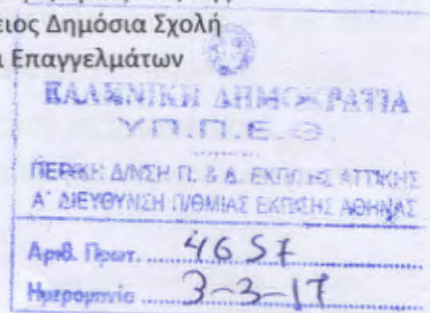 ειος Δημόσια Σχολή
ι Επαγγελμάτων
ΕΛΛΗΝΙΚΗ ΔΗΜΟΚΡΑΤΙΑ
Υ Π. Π. Ε. Θ.
ΠΕΡ/ΚΗ Δ/ΝΣΗ Π. & Δ. ΕΚΠ/ΣΗΣ ΑΤΤΙΚΗΣ
Α΄ ΔΙΕΥΘΥΝΣΗ Π/ΘΜΙΑΣ ΕΚΠ/ΣΗΣ ΑΘΗΝΑΣ
Αριθ. Πρωτ. 4657
Ημερομηνία 3-3-17